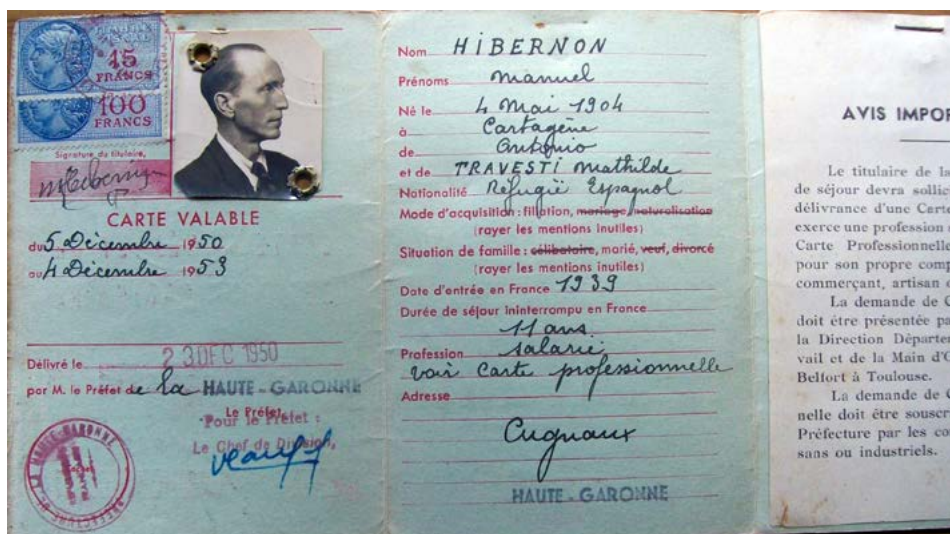 15
FRANCS
100
FRANCS
Signature du titulaire,
CARTE VALABLE
du 5 Décembre 1950
au 4 Décembre 1953
Délivré le 23 DEC 1950
par M. le Préfet de la HAUTE-GARONNE
Le Préfet,
Pour le Préfet :
Le Chef de Division,
PREFECTURE DE LA HAUTE-GARONNE
Nom HIBERNON
Prénoms Manuel
Né le 4 Mai 1904
à Cartagène
de Antonio
et de TRAVESTI Mathilde
Nationalité Réfugié Espagnol
Mode d'acquisition : filiation, mariage, naturalisation
(rayer les mentions inutiles)
Situation de famille : célibataire, marié, veuf, divorcé
(rayer les mentions inutiles)
Date d'entrée en France 1939
Durée de séjour ininterrompu en France
11 ans
Profession salarié
voir carte professionnelle
Adresse
Cugnaux
HAUTE-GARONNE
AVIS IMPOR
Le titulaire de la
de séjour devra sollic
délivrance d'une Cart
exerce une profession
Carte Professionnelle
pour son propre comp
commerçant, artisan
La demande de C
doit être présentée pa
la Direction Départe
vail et de la Main d'O
Belfort à Toulouse.
La demande de C
nelle doit être souscr
Préfecture par les co
sans ou industriels.